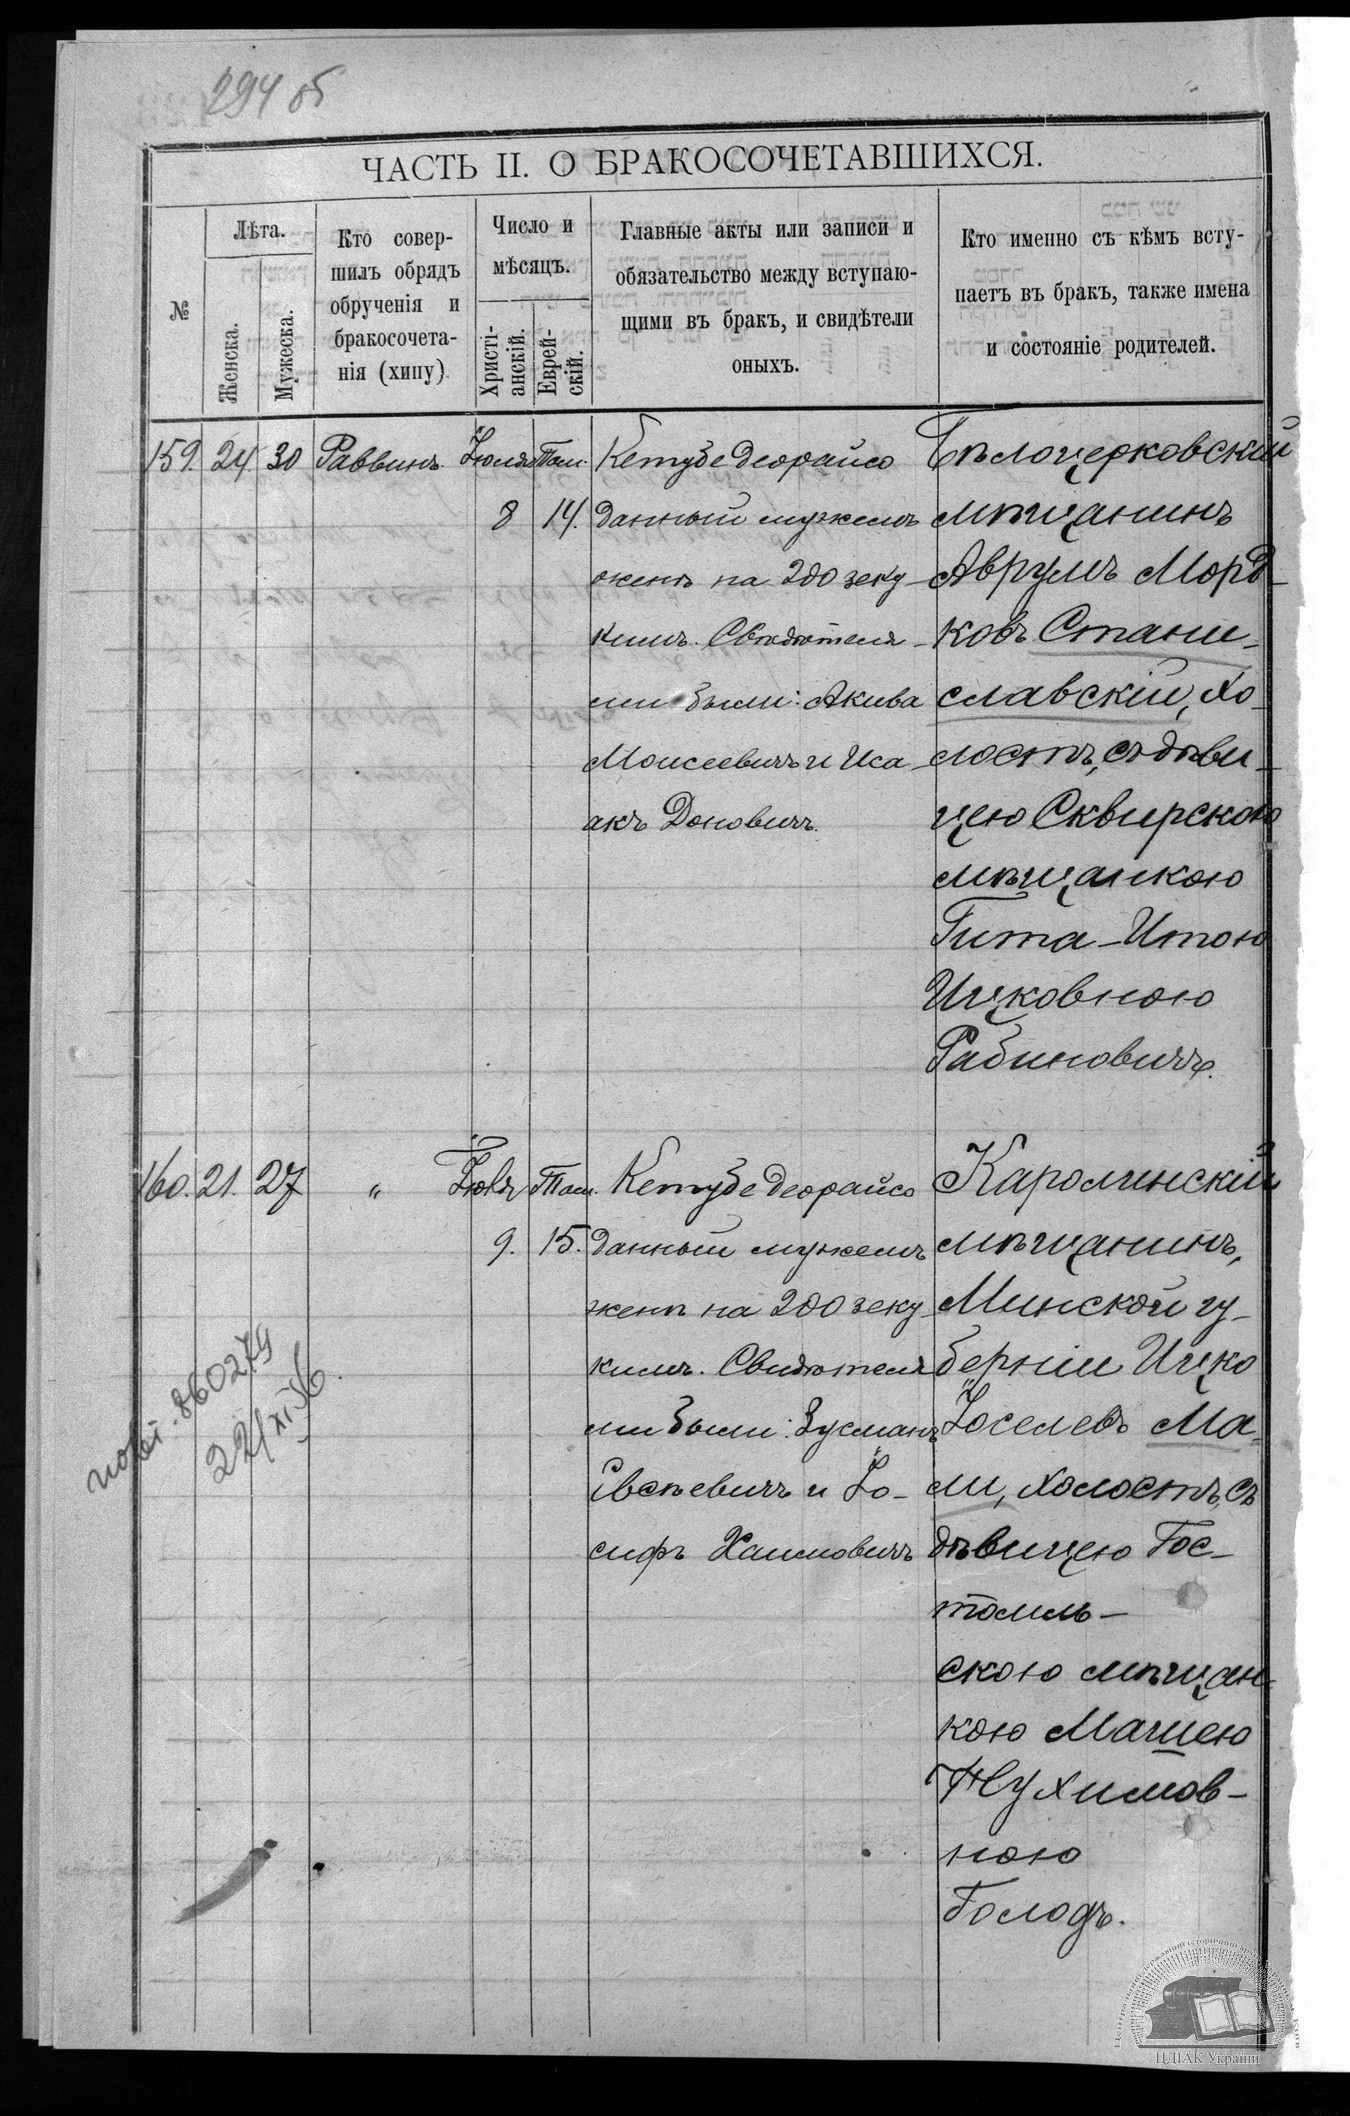 294 об
ЧАСТЬ II. О БРАКОСОЧЕТАВШИХСЯ.
№
Лѣта.
Женска.
Мужеска.
Кто совер-
шилъ обрядъ
обрученія и
бракосочета-
нія (хипу)
Число и
мѣсяцъ.
Христі-
анскій.
Еврей-
скій.
Главные акты или записи и
обязательство между вступаю-
щими въ бракъ, и свидѣтели
оныхъ.
Кто именно съ кѣмъ всту-
паетъ въ бракъ, также имена
и состояніе родителей.
159. 24 30 Раввинъ. Іюля Там.
8 14.
Кетубе деорайсо
данный мужемъ
женѣ на 200 зеку-
кимъ. Свидѣтеля-
ми были: Акива
Моисеевичъ и Иса-
акъ Доновичъ.
Бѣлоцерковскій
мѣщанинъ
Аврумъ Морд-
ковъ Стани-
славскій, хо-
лостъ, съ дѣви-
цею Сквирскою
мѣщанкою
Гита-Итою
Ицковною
Рабиновичъ.
160. 21. 27 " Іюля Там.
9. 15.
Кетубе деорайсо
данный мужемъ
женѣ на 200 зеку-
кимъ. Свидѣтеля
ми были: Зусманъ
Евсѣевичъ и Іо-
сифъ Хаимовичъ
Каролинскій
мѣщанинъ,
Минской гу-
берніи Ицко
Іоселевъ Ма-
ли, холостъ, съ
дѣвицею Гос-
томль-
скою мѣщан-
кою Машею
Нухимов-
ною
Голодъ.
860279
22/XI 56.
ЦДІАК України